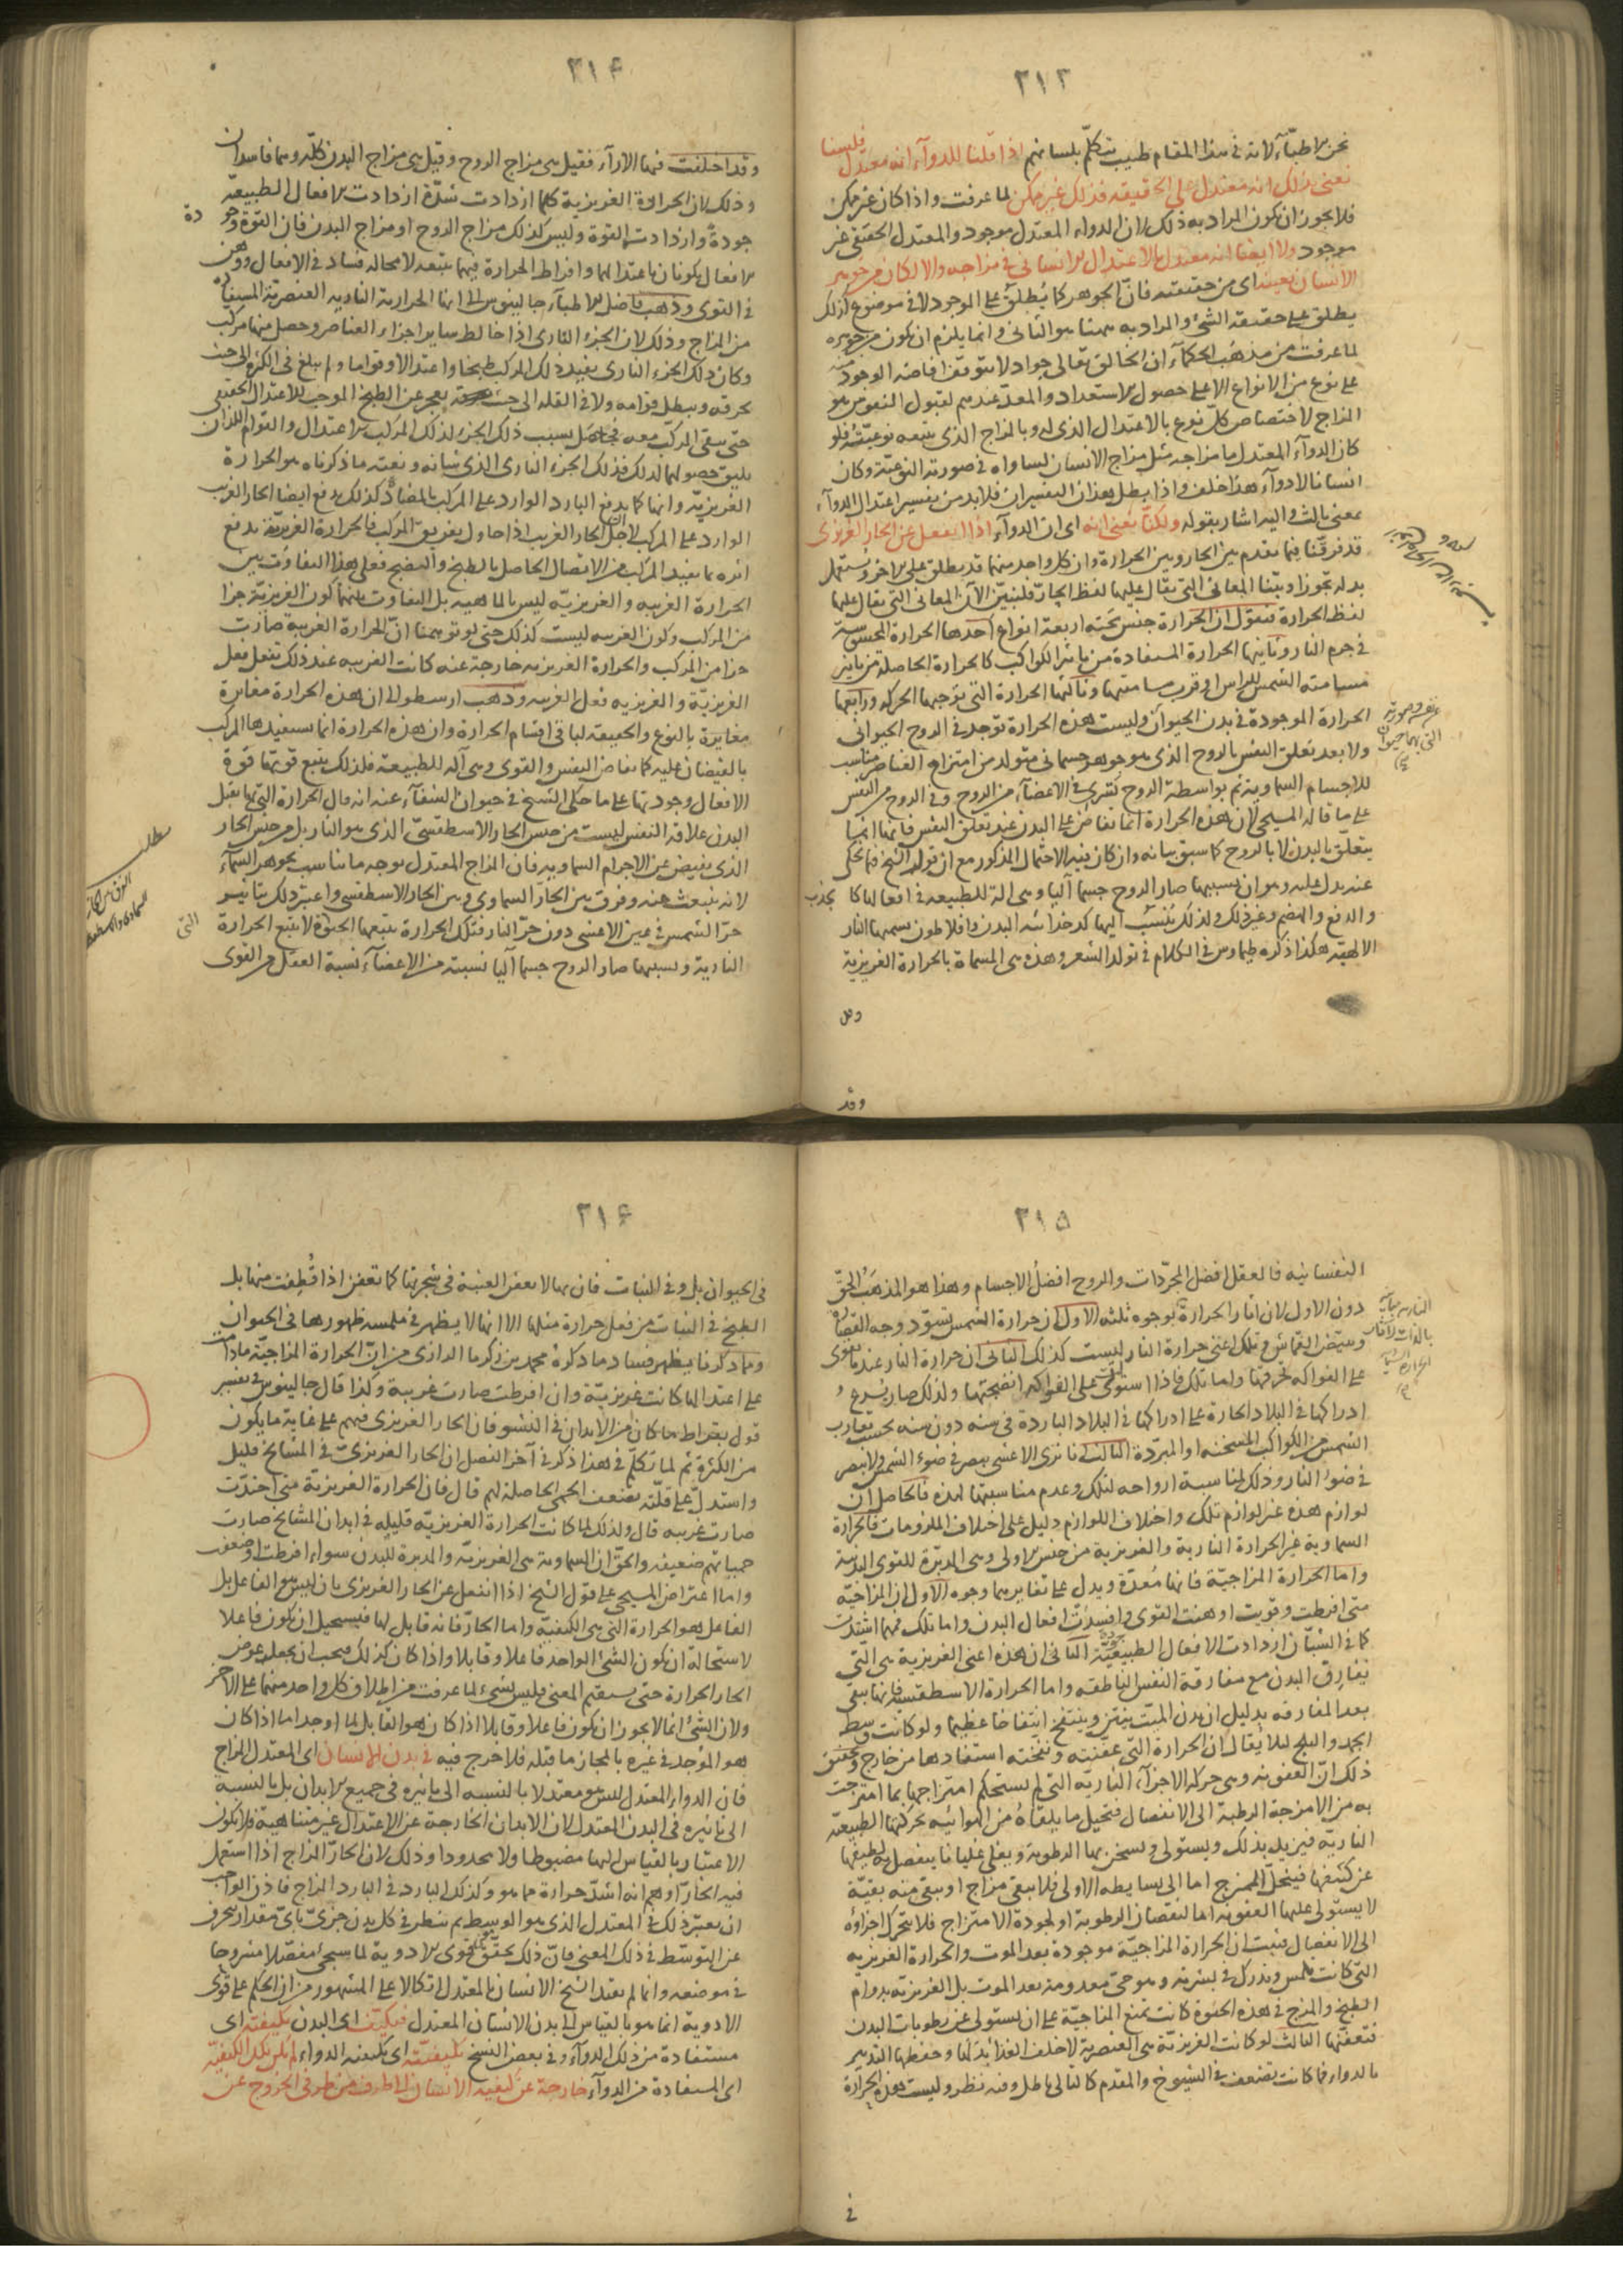 ٢١٣
نحن الاطباء لانه فى هذا المقام طبيب يتكلم بلسانهم اذا قلنا للدوآء انه معتدل فلسنا
نعنى بذلك انه معتدل على الحقيقه فذلك غير ممكن لما عرفت واذا كان غير ممكن
فلا يجوز ان يكون المراد به ذلك لان الدوآء المعتدل موجود والمعتدل الحقيقى غير
موجود ولا ايضا انه معتدل بالاعتدال الانسانى فى مزاجه والا لكان من جوهر
الانسان بعينه اى من حقيقته فان الجوهر كما يُطلق على الموجود لا فى موضوع كذلك
يطلق على حقيقة الشئ والمراد به ههنا هو الثانى وانما يلزم ان يكون من جوهره
لما عرفت من مذهب الحكمآء ان الخالق تعالى جواد لا يتوقف افاضه الوجود منه
على نوع من الانواع الا على حصول الاستعداد والمعد عندهم لقبول النفوس هو
المزاج لاختصاص كل نوع بالاعتدال الذى له وبالمزاج الذى يتبعه نوعيته فلو
كان الدوآء المعتدل ما مزاجه مثل مزاج الانسان لساواه فى صورته النوعية وكان
انسانا لا دوآء هذا خلف واذا بطل هذان التفسيران فلا بد من تفسير اعتدال الدوآء
بمعنى ثالث واليه اشار بقوله ولكنا نعنى انه اى ان الدوآء اذا انفعل عن الحار الغريزى
قد فرقنا فيما تقدم بين الحار وبين الحرارة وان كل واحد منهما قد يطلق على الاخر ويستعمل
بدله تجوزا وبيّنا المعانى التى يقال عليها لفظ الحار فلنبيّن الآن المعانى التى يقال عليها
لفظ الحرارة فنقول ان الحرارة جنس تحته اربعة انواع احدها الحرارة المحسوسة
فى جرم النار وثانيها الحرارة المستفادة من تاثير الكواكب كالحرارة الحاصله من تاثير
مسامته الشمس للراس او قرب مسامتهما وثالثها الحرارة التى توجبها الحركه ورابعها
الحرارة الموجودة فى بدن الحيوان وليست هذه الحرارة توجد فى الروح الحيوانى
ولا بعد تعلق النفس بالروح الذى هو جوهر جسمانى متولد من امتزاج العناصر مناسب
للاجسام السماوية ثم بواسطة الروح تسرى فى الاعضآء من الروح وفى الروح من النفس
على ما قاله المسيحى لان هذه الحرارة انما تفاض على البدن عند تعلق النفس فانها انما
يتعلق بالبدن لا بالروح كما سبق بيانه وان كان فيه الاحتمال المذكور مع ان قول الشيخ فيما يحكى
عنه يدل عليه وهو ان بسببها صار الروح جسما آليا وهى الة للطبيعه فى افعالها كالجذب
والدفع والهضم وغير ذلك ولذلك يُنسب اليها كدخدائية البدن وافلاطون يسميها النار
الالهية هكذا ذكره طيماوس فى الكلام فى تولد الشعر وهذه هى المسماة بالحرارة الغريزية
وقد
٢١٤
وقد اختلفت فيها الارآء فقيل هى مزاج الروح وقيل هى مزاج البدن كله وهما فاسدان
وذلك لان الحرارة الغريزية كلما ازدادت شدّة ازدادت الافعال الطبيعة
جودة وازدادت القوة وليس كذلك مزاج الروح او مزاج البدن فان القوة وجودة
الافعال يكونان باعتدالهما وافراط الحرارة فيهما يتبعه لا محاله فساد فى الافعال ووهن
فى القوى وذهب فاضل الاطبآء جالينوس الى انها الحرارة النارية العنصرية المستفادة
من المزاج وذلك لان الجزء النارى اذا خالط سائر اجزاء العناصر وحصل منها مركب
وكان ذلك الجزء النارى يفيد ذلك المركب طبخا واعتدالا وقواما ولم يبلغ فى الكثرة الى حيث
يحرقه ويبطل قوامه ولا فى القله الى حيث يعجز عن الطبخ الموجب للاعتدال الحقيقى
حتى يبقى المركب معه فجا حصل بسبب ذلك الجزء لذلك المركب الاعتدال والقوام اللذان
يليق حصولهما لذلك فذلك الجزء النارى الذى شانه ونعته ما ذكرناه هو الحرارة
الغريزيّة وانها كما يدفع البارد الوارد على المركب بالمضادّة كذلك يدفع ايضا الحار الغريب
الوارد على المركب لاجل ان الحار الغريب اذا حاول تفريق المركب فالحرارة الغريزيّة تدفع
اثره بما يفيد المركب من الاتصال الحاصل بالطبخ والنضج فعلى هذا التفاوت بين
الحرارة الغريبه والغريزيّه ليس بالماهيه بل التفاوت بينهما كون الغريزيّة جزا
من المركب وكون الغريبه ليست كذلك حتى لو توهمنا ان الحرارة الغريبه صارت
جزا من المركب والحرارة الغريزيه خارجة عنه كانت الغريبه عند ذلك تفعل فعل
الغريزيّة والغريزيه فعل الغريبه وذهب ارسطو الى ان هذه الحرارة مغايرة
مغايرة بالنوع والحقيقه لباقى اقسام الحرارة وان هذه الحرارة انما يستفيدها المركب
بالفيضان عليه كما تفاض النفس والقوى وهى آله للطبيعة فلذلك يتبع قوتها قوة
الافعال وجودتها على ما حكى الشيخ فى حيوان الشفآء عنه انه قال الحرارة التى بها تقبل
البدن علاقة النفس ليست من جنس الحار الاسطقسّى الذى هو النار بل من جنس الحار
الذى يفيض عن الاجرام السماويه فان المزاج المعتدل بوجه ما يناسب لجوهر السمآء
لانه ينبعث عنه وفرق بين الحار السماوى وبين الحار الاسطقسى واعتبر ذلك بتاثير
حرّ الشمس فى عين الاعشى دون حرّ النار فتلك الحرارة يتبعها الحيوة لا يتبع الحرارة التى
النارية وبسببها صار الروح جسما آليا نسبته من الاعضآء نسبة العقل من القوى
مطلب
٢١٥
النفسانيه فالعقل افضل المجرّدات والروح افضلُ الاجسام وهذا هو المذهب الحقّ
دون الاول لان اثار الحرارة بوجوه ثلثه الاول ان حرارة الشمس تسوّد وجه القصّار
وتبيض القماش وتلك اعنى حرارة النار ليست كذلك الثانى ان حرارة النار عند ما تقوى
على الفواكه تحرقها واما تلك فاذا استولى على الفواكه انضجتها ولذلك صار يُسرع
ادراكها فى البلاد الحارة على ادراكها فى البلاد الباردة فى سنه دون سنه بحسب تقارب
الشمس من الكواكب المسخنه او المبرّدة الثالث انا نرى الاعشى يبصر فى ضوء الشمس ولا يبصر
فى ضوء النار وذلك لمناسبة ارواحه لتلك وعدم مناسبتها لهذه فالحاصل ان
لوازم هذه غير لوازم تلك واختلاف اللوازم دليل على اختلاف الملزومات فالحرارة
السماوية غير الحرارة النارية والغريزية من جنس الاولى وهى المدبّرة للقوى البدنية
واما الحرارة المزاجيّة فانها مُعدّة ويدل على تغايرهما وجوه الاول ان المزاجيّه
متى افرطت وقويت اوهنت القوى وافسدت افعال البدن واما تلك فمهما اشتدت
كما فى الشبّان ازدادت الافعال الطبيعيّة جودة الثانى ان هذه اعنى الغريزية هى التى
تفارق البدن مع مفارقة النفس الناطقه واما الحرارة الاسطقسيه فانها يبقى
بعد المفارقه بدليل ان بدن الميّت ينتن وينتفخ انتفاخا عظيما ولو كانت وسط
الجمد والثلج لئلا يقال ان الحرارة التى عفّنته ونفخته استفادها من خارج وتحقيق
ذلك انّ العفونه وهى حركه الاجزآء الناريه التى لم يستحكم امتزاجها بما امتزجت
به من الامزجة الرطبة الى الانفصال فتحيل ما يلقاهُ من الهوائيه بحركتها الطبيعة
الناريّه فيزيد بذلك ويستولى ويسخن بها الرطوبة ويغلى غليانا ينفصل به لطيفها
عن كثيفها فينحلّ الممتزج اما الى بسايطه الاولى فلا يبقى مزاج او يبقى منه بقيّة
لا يستولى عليها العفونه اما لنقصان الرطوبة او لجودة الامتزاج فلا يتحرك اجزاؤه
الى الانفصال فثبت ان الحرارة المزاجيّة موجودة بعد الموت والحرارة الغريزيه
التى كانت تلمس وتدرك فى بشرته وهو حىّ معدومة بعد الموت بل الغريزيّة بدوام
الطبخ والمزج فى هذه الحيوة كانت تمنع المزاجيّة على ان يستولى على رطوبات البدن
فتعفّنها الثالث لو كانت الغريزيّة هى العنصرية لاخلف الغذا بدلها وحفظها التدبير
بالدواء فما كانت تضعف فى الشيوخ والمقدم كالتالى باطل وفيه نظر وليست هذه الحرارة
فى
٢١٦
فى الحيوان بل وفى النبات فان بها لا يعفن العنبة فى شجرتها كما تعفن اذا قُطِفت منها بل
الطبخ فى النبات من فعل حرارة مثلها الا انها لا يظهر فى ملمسه ظهورها فى الحيوان
ومما ذكرنا يظهر فساد ما ذكره محمد بن زكريا الرازى من انّ الحرارة المزاجيّة ما دامت
على اعتدالها كانت غريزيّة وان افرطت صارت غريبة وكذا قال جالينوس فى تفسير
قول بقراط ما كان من الابدان فى النشو فان الحار الغريزى فيهم على غاية ما يكون
من الكثرة ثم لما تكلم فى هذا ذكر فى آخر الفصل ان الحار الغريزىّ فى المشايخ قليل
واستدلّ على قلّته بضعف الحمى الحاصله لهم قال فان الحرارة الغريزيّة متى احتدّت
صارت غريبه قال ولذلك لما كانت الحرارة الغريزيّة قليله فى ابدان المشايخ صارت
حمياتهم ضعيفه والحقّ ان السماوية هى الغريزيّه والمدبرة للبدن سواء افرطت او ضعفت
واما اعتراض المسيحى على قول الشيخ اذا انفعل عن الحار الغريزى بان ليس هو الفاعل بل
الفاعل هو الحرارة التى هى الكيفيّة واما الحارّ فانه قابل لها فيستحيل ان يكون فاعلا
لاستحالة ان يكون الشئ الواحد فاعلا وقابلا واذا كان كذلك فيجب ان يجعل عوض
الحار الحرارة حتى يستقيم المعنى فليس بشئ لما عرفت من اطلاق كل واحد منهما على الاخر
ولان الشئ انما لا يجوز ان يكون فاعلا وقابلا اذا كان هو القابل لما اوجد اما اذا كان
هو الموجد فى غيره بالمجاز ما قبله فلا خرج فيه فى بدن الانسان اى المعتدل المزاج
فان الدواء المعتدل ليس هو معتدلا بالنسبه الى تاثيره فى جميع الابدان بل بالنسبة
الى تاثيره فى البدن المعتدل لان الابدان الخارجة عن الاعتدال غير متناهية فلا يكون
الاعتبار بالقياس اليها مضبوطا ولا محدودا وذلك لان الحارّ المزاج اذا استعمل
فيه الحارّ اوهم انه اشدّ حرارة مما هو وكذلك البارد فى البارد المزاج فاذن الواجب
ان يعتبر ذلك فى المعتدل الذى هو الوسيط ثم ينظر فى كل بدن جزىّ باىّ مقدار ينحرف
عن التوسّط فى ذلك المعنى فانّ ذلك يحقق قوى الادوية لما سيجئ مفصّلا مشروحا
فى موضعه وانما لم يقيد الشيخ الانسان بالمعتدل اتكالا على المشهور من ان الحكم على قوى
الادوية انما هو بالقياس الى بدن الانسان المعتدل فيكيّف اى البدن بكيفيّة اى
مستفادة من ذلك الدوآء وفى بعض النسخ بكيفيّته اى بكيفية الدواء لم يكن تلك الكيفيّة
اى المستفادة من الدوآء خارجة عن كيفية الانسان الى طرف من طرفى الخروج عن